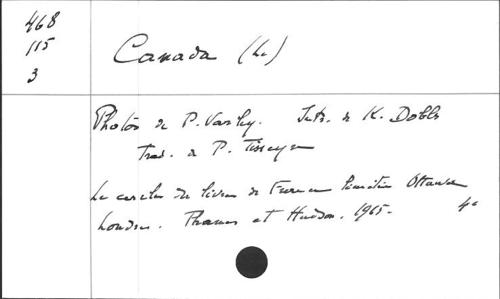 468
115
3
Canada (Le)
Photos de P. Varley. Intr. de K. Dobbs
Trad. de P. Tisseyre
Le cercle du livre de France limitée Ottawa
Londres. Thames et Hudson. 1965. 4°